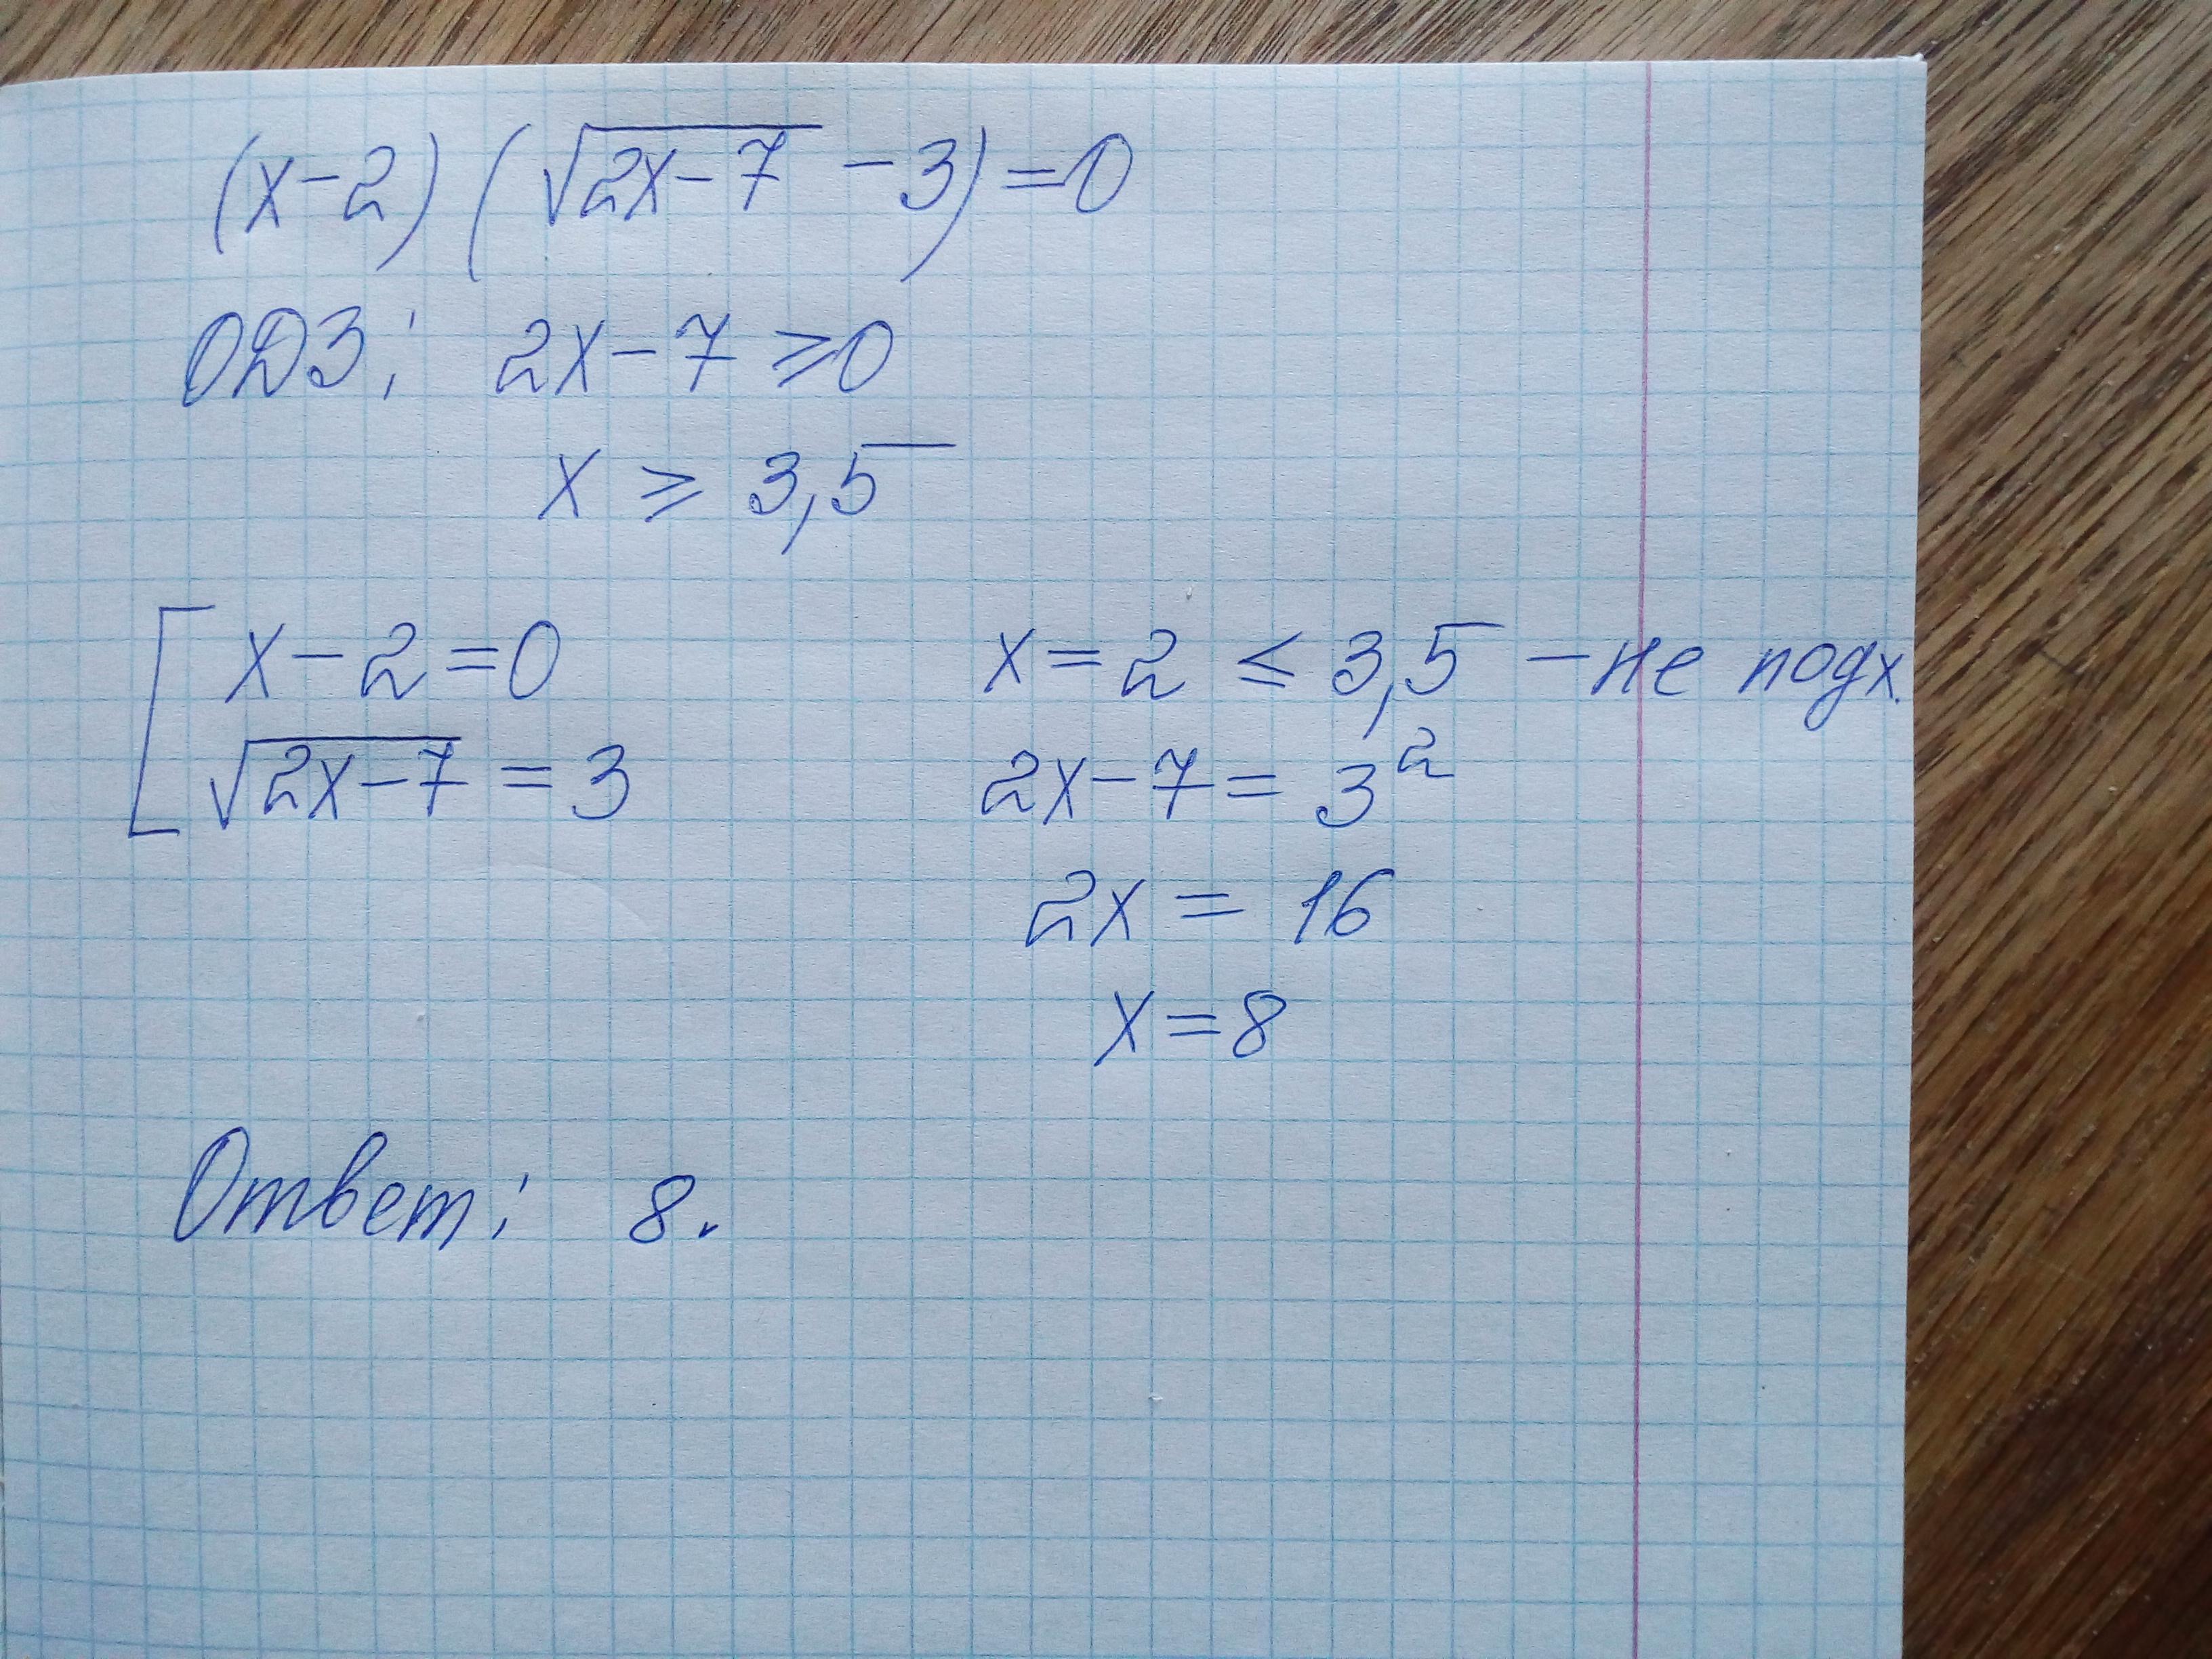 (x-2)(√2x-7 -3)=0
ОДЗ: 2x-7 ≥0
x ≥ 3,5
x-2=0 x=2 ≤ 3,5 - не подх.
√2x-7 = 3 2x-7= 3²
2x = 16
x=8
Ответ: 8.